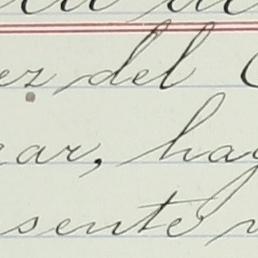 ez del
ar, hag
sente